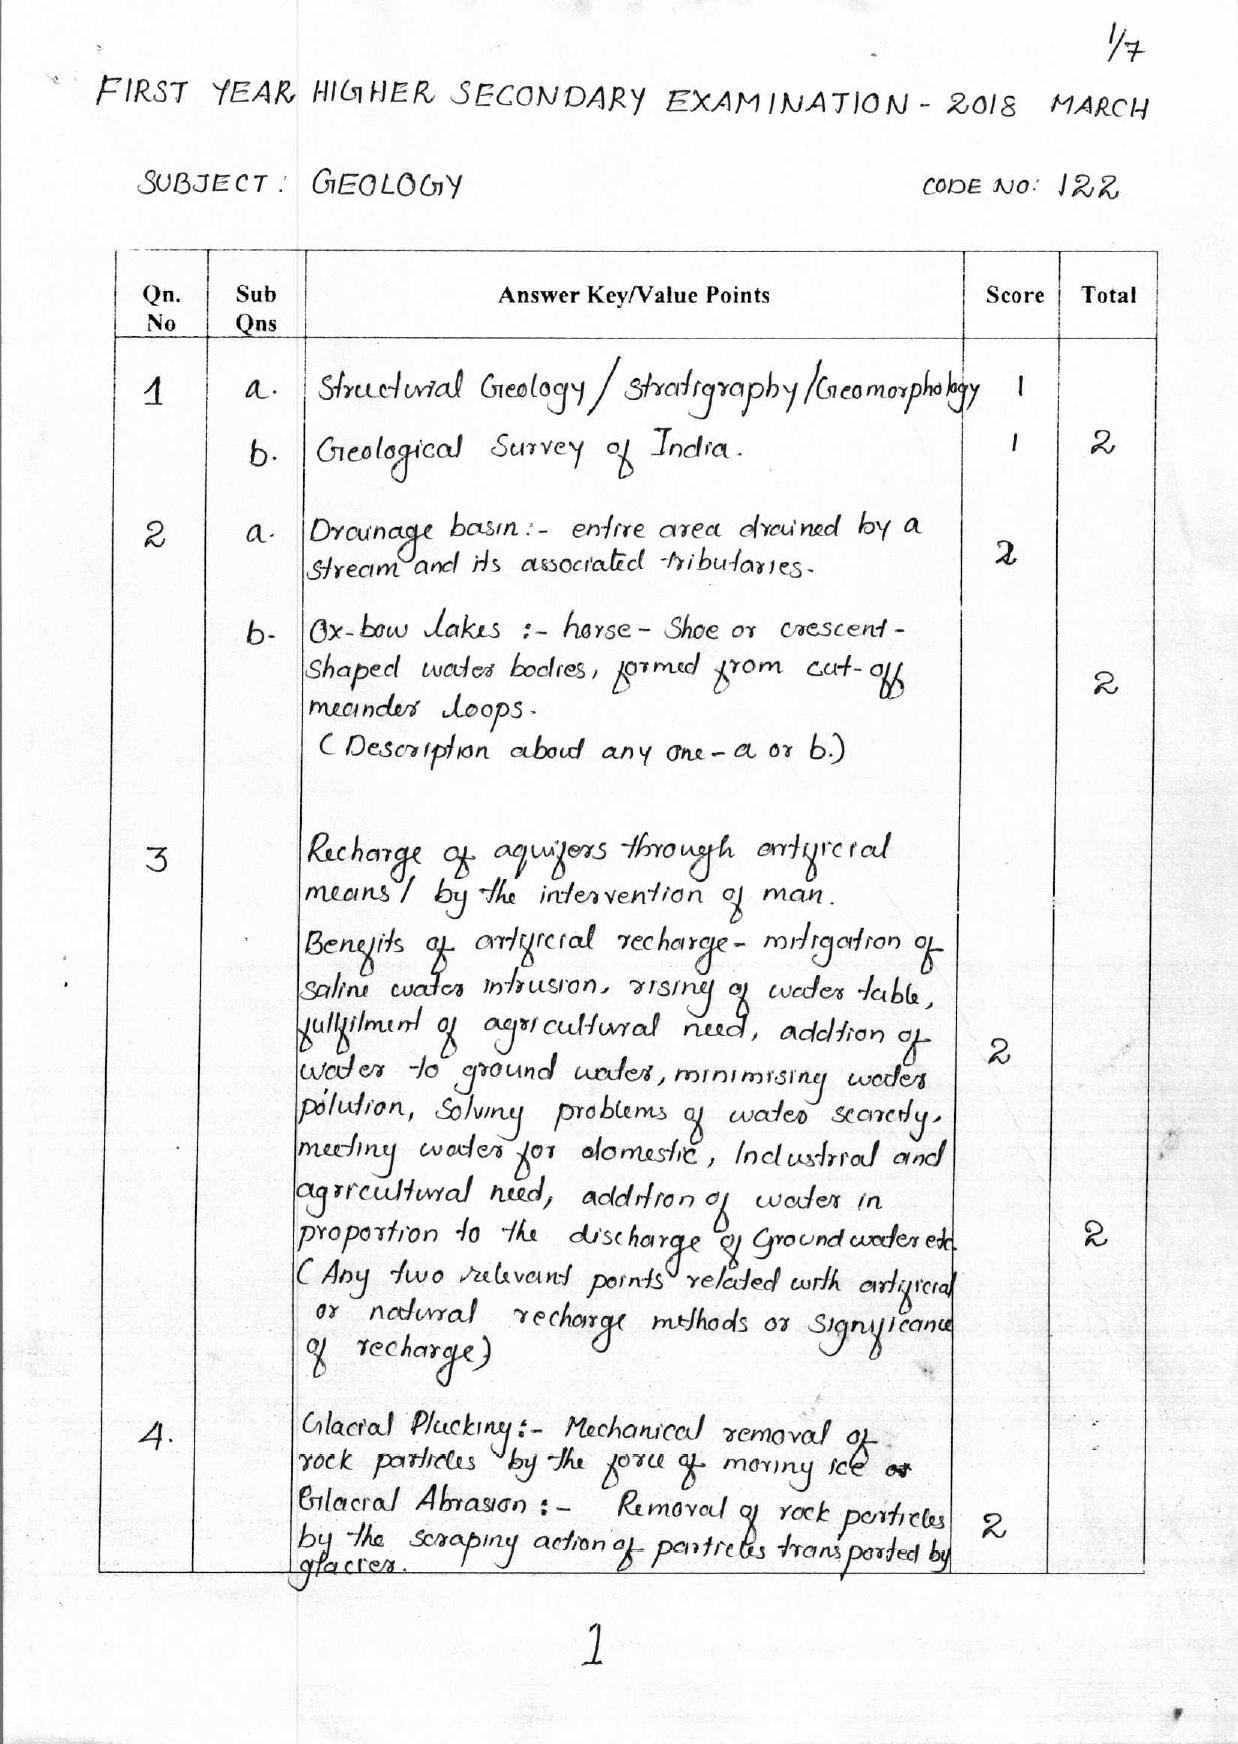 1/7
FIRST YEAR HIGHER SECONDARY EXAMINATION - 2018 MARCH
SUBJECT: GEOLOGY CODE NO: 122
Qn. No Sub Qns Answer Key/Value Points Score Total
1 a. Structural Geology / Stratigraphy / Geomorphology 1
b. Geological Survey of India. 1 2
2 a. Drainage basin:- entire area drained by a
stream and its associated tributaries. 2
b- Ox-bow lakes :- horse-shoe or crescent-
shaped water bodies, formed from cut-off 2
meander loops.
(Description about any one - a or b.)
3 Recharge of aquifers through artificial
means / by the intervention of man.
Benefits of artificial recharge - mitigation of
saline water intrusion, rising of water table,
fullfilment of agricultural need, addtion of
water to ground water, minimising water 2
polution, Solving problems of water scarcity,
meeting water for domestic, Industrial and
agricultural need, addition of water in
proportion to the discharge of Ground water etc. 2
(Any two relevant points related with artificial
or natural recharge methods or significance
of recharge)
4. Glacial Plucking:- Mechanical removal of
rock particles by the force of moving ice or
Glacial Abrasion :- Removal of rock particles
by the scraping action of particles transported by 2
glacier.
1